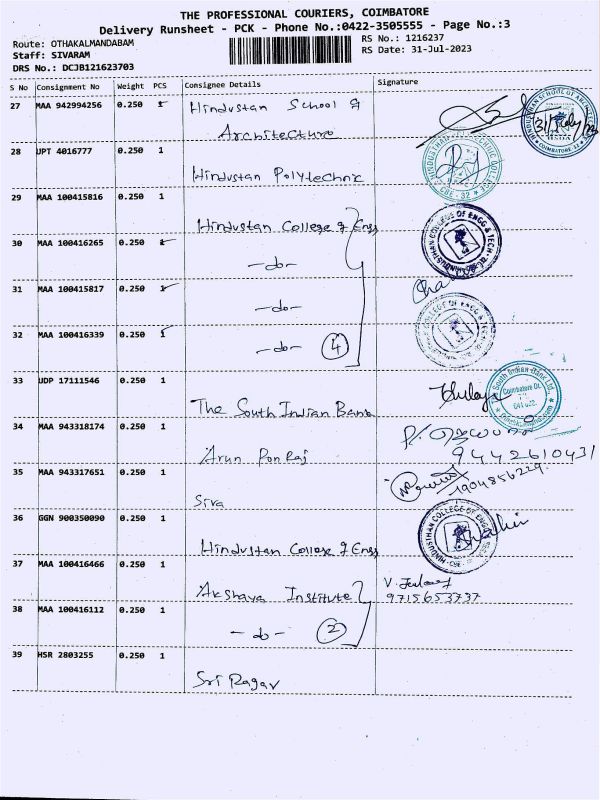 THE PROFESSIONAL COURIERS, COIMBATORE
Delivery Runsheet - PCK - Phone No.:0422-3505555 - Page No.:3
Route: OTHAKALMANDABAM
RS No.: 1216237
Staff: SIVARAM
RS Date: 31-Jul-2023
DRS No.: DCJB121623703
S No Consignment No Weight PCS Consignee Details Signature
27 MAA 942994256 0.250 1 Hindustan School of
Architecture
28 UPT 4016777 0.250 1
Hindustan Polytechnic
29 MAA 100415816 0.250 1
Hindustan College of Engg
30 MAA 100416265 0.250 1
-do-
31 MAA 100415817 0.250 1
-do-
32 MAA 100416339 0.250 1
-do- 4
33 UDP 17111546 0.250 1
The South Indian Bank
34 MAA 943318174 0.250 1
Arun Ponraj 9442610431
35 MAA 943317651 0.250 1
1904856229
Siva
36 GGN 900350090 0.250 1
Hindustan College of Engg
37 MAA 100416466 0.250 1
Akshaya Institute 9715653737
38 MAA 100416112 0.250 1
-do- 2
39 HSR 2803255 0.250 1
Sri Ragav